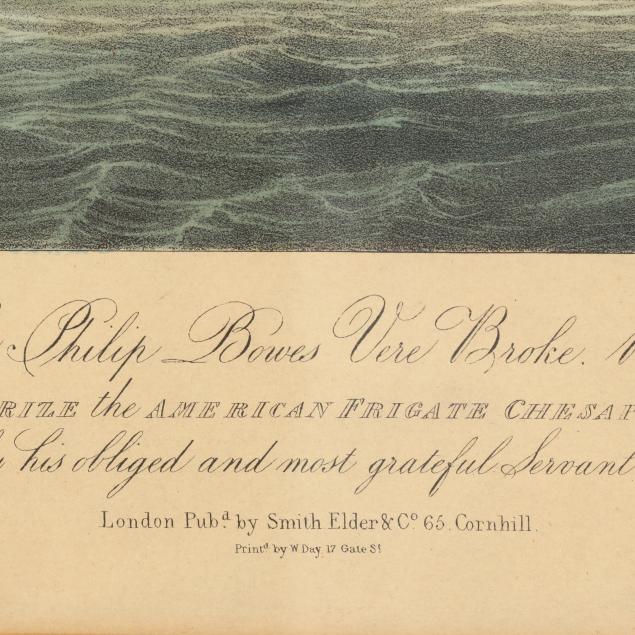 Philip Bowes Vere Broke.
RIZE the AMERICAN FRIGATE CHESAP
his obliged and most grateful Servant
London Pubd by Smith Elder & Co 65. Cornhill.
Printd by W Day 17 Gate St